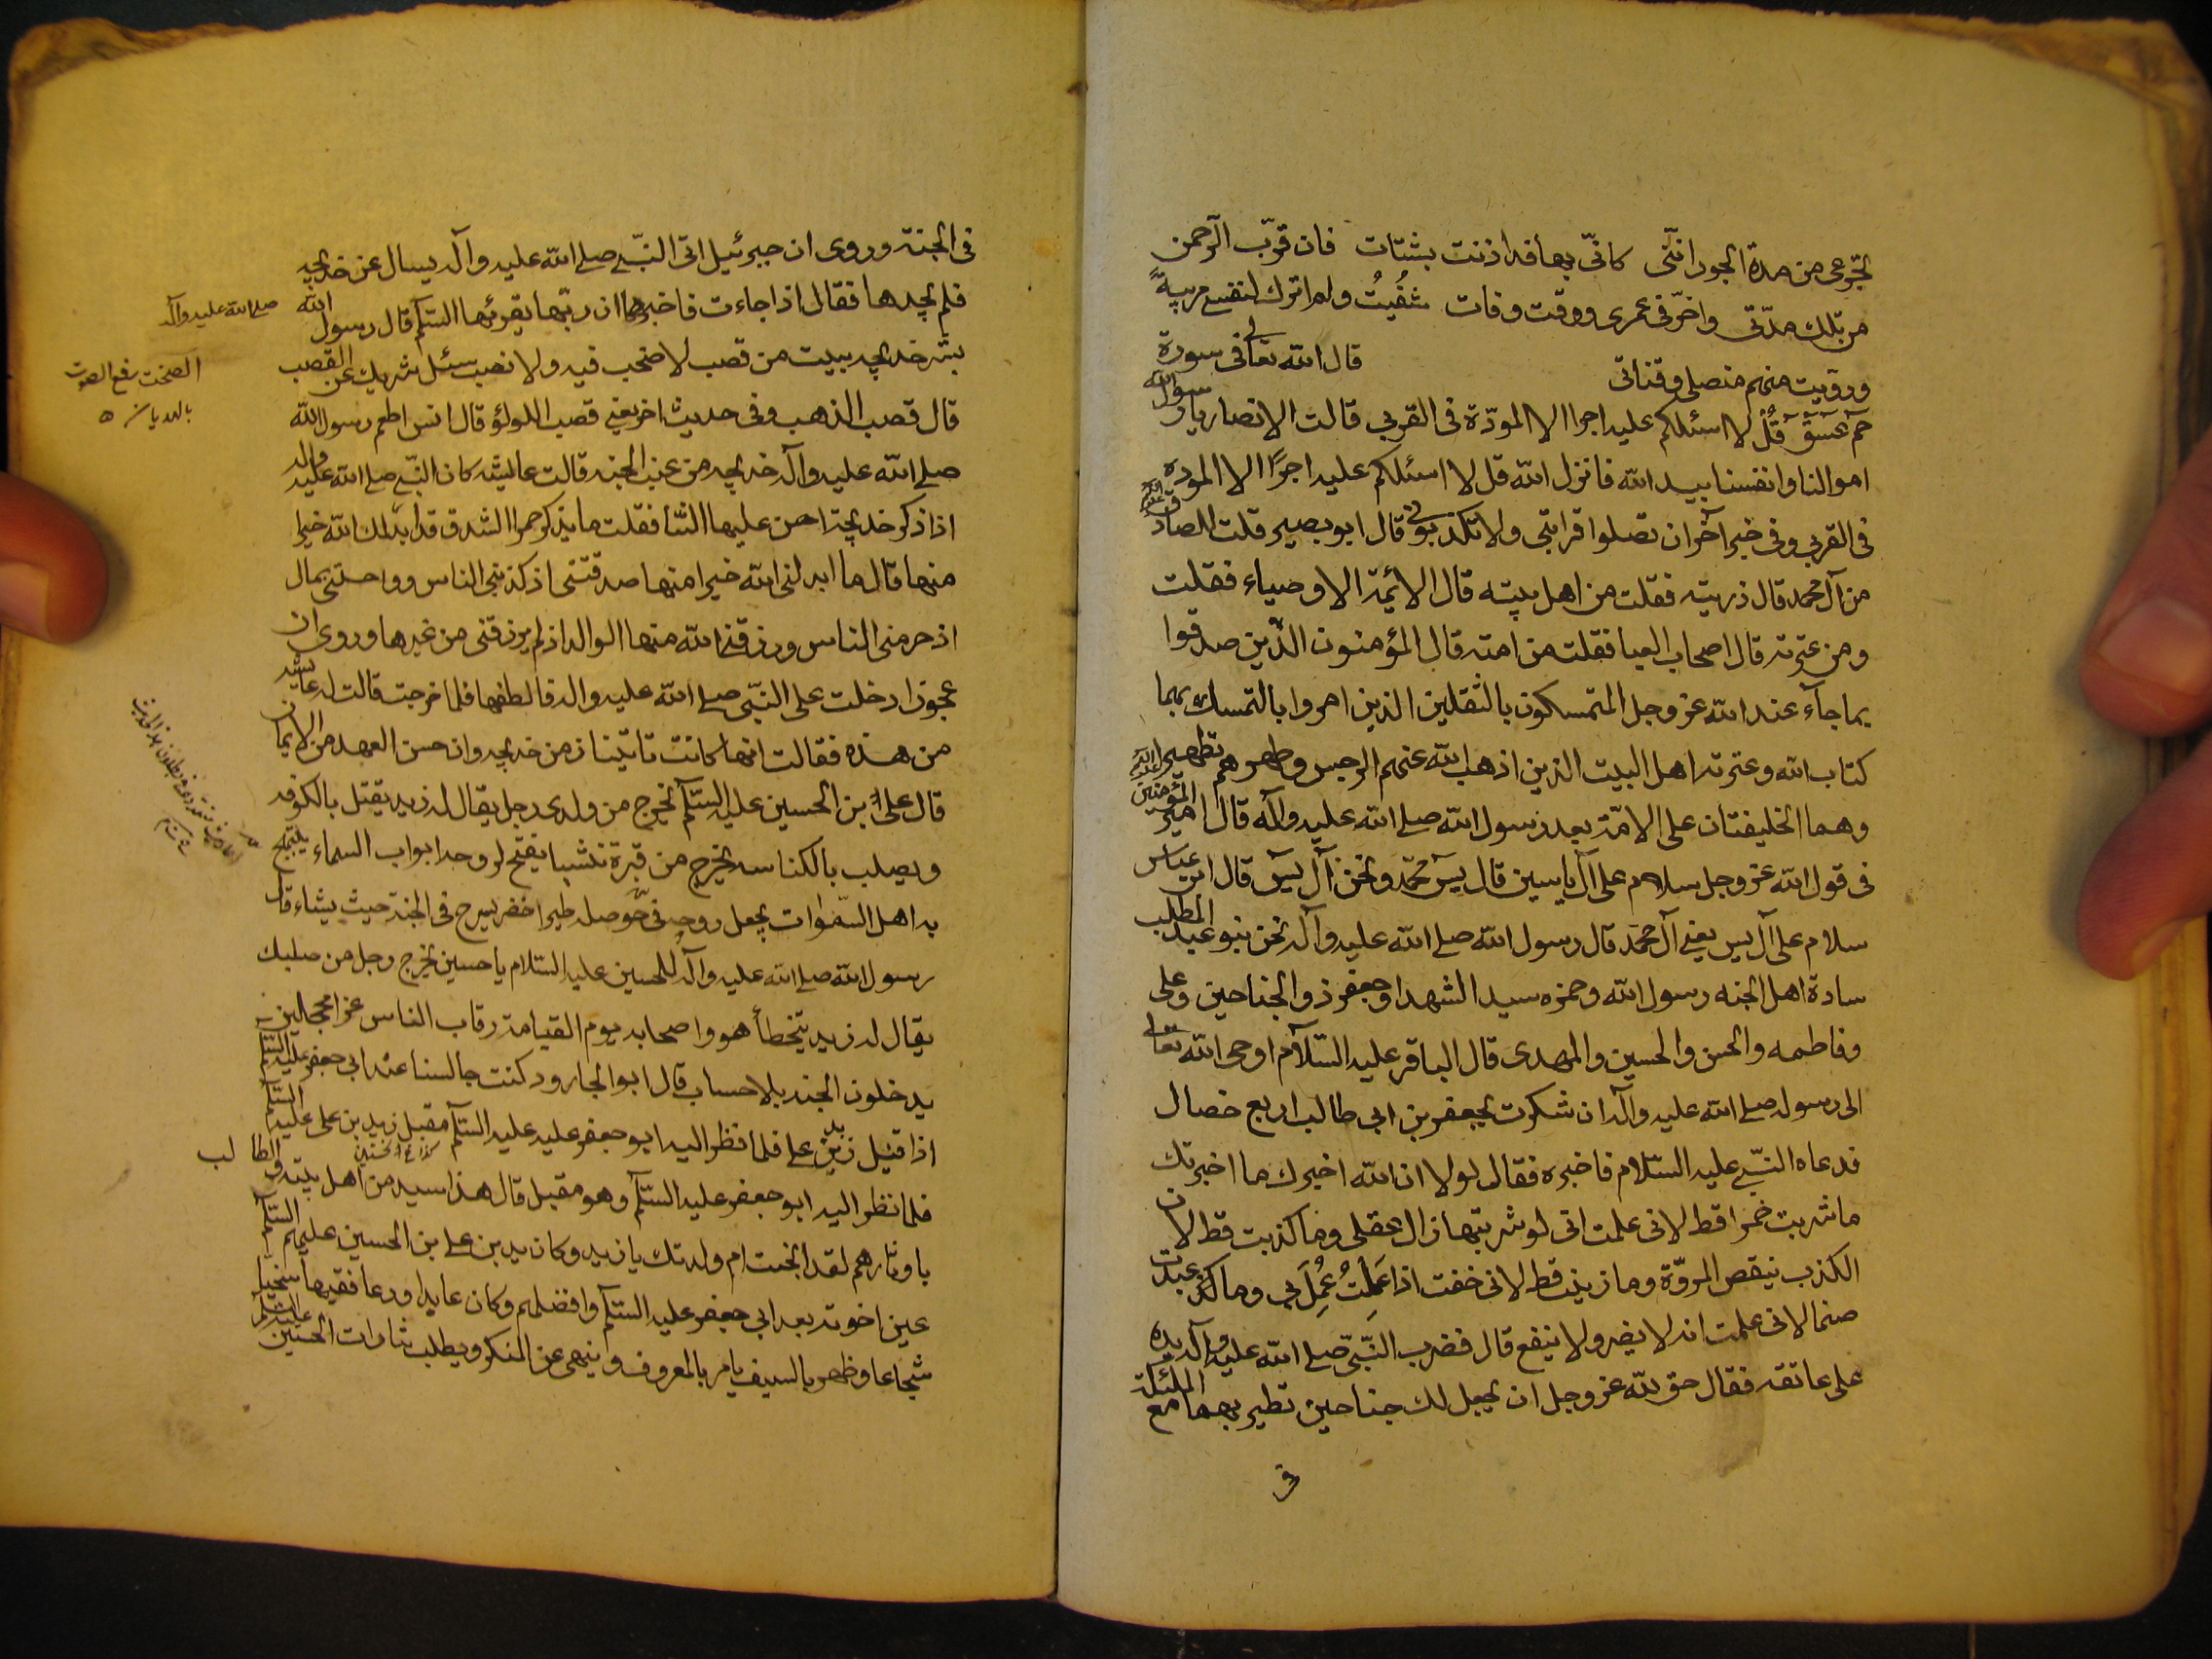 تخرجى من مدة الجور انّنى كانّى بها قد اذنت بشتات فان قرّب الرحمن
من تلك مدّتى واخّر فى عمرى ووقت وفات شفُيتُ ولم اترك لنفسى ريبةً
وروّيت منهم منصلى وقناتى قال الله تعالى فى سورة
حم عسق قُل لا اسئلكم عليه اجرا الا المودّة فى القربى قالت الانصار يا رسول الله
اموالنا وانفسنا بيد الله فانزل الله قل لا اسئلكم عليه اجرًا الا المودة
فى القربى وفى خبر آخر ان تصلوا قرابتى ولا تكذبونى قال ابو بصير قلت للصادق
من آل محمد قال ذريته فقلت من اهل بيته قال الائمة الاوصياء فقلت
ومن عترته قال اصحاب العبا فقلت من امته قال المؤمنون الذّين صدقوا
بما جآء عند الله عز وجل المتمسكون بالثقلين الذين امروا بالتمسك بهما
كتاب الله وعترته اهل البيت الذين اذهب الله عنهم الرجس وطهرهم تطهيرا
وهما الخليفتان على الامّة بعد رسول الله صلى الله عليه وآله قال امير المؤمنين
فى قول الله عز وجل سلام على آل ياسين قال يس محمّد ونحن آل يس قال ابن عباس
سلام على آل يس يعنى آل محمد قال رسول الله صلى الله عليه وآله نحن بنو عبد المطلب
سادة اهل الجنه رسول الله وحمزه سيد الشهدا وجعفر ذو الجناحين وعلى
وفاطمه والحسن والحسين والمهدى قال الباقر عليه السّلام اوحى الله تعالى
الى رسوله صلى الله عليه وآله ان شكرت لجعفر بن ابى طالب اربع خصال
فدعاه النبّى عليه السّلام فاخبره فقال لولا ان الله اخبرك ما اخبرتك
ما شربت خمرا قط لانى علمت انى لو شربتها زال عقلى وما كذبت قط لان
الكذب ينقص المروّة وما زنيت قط لانى خفت اذا عَمِلتُ عُمِلَ بى وما عبدت
صنما لانى علمت انه لا يضر ولا ينفع قال فضرب النّبّى صلى الله عليه وآله يده
على عاتقه فقال حق لله عز وجل ان يجعل لك جناحين تطير بهما مع الملئكة
فى
فى الجنة وروى ان جبرئيل اتى النبّى صلى الله عليه وآله يسال عن خديجه
فلم يجدها فقال اذا جاءت فاخبرها ان ربّها يقرئها السّلم قال رسول الله
صلى الله عليه وآله
بشّر خديجه ببيت من قصب لا ضخب فيه ولا نصب سئل شريك عن القصب
الصخب رفع الصوت
قال قصب الذهب وفى حديث اخر يعنى قصب اللولؤ قال انس اطعم رسول الله
صلى الله عليه وآله خديجه من عنب الجنه قالت عايشه كان النبّى صلى الله عليه واله
اذا ذكر خديجة احسن عليها الثنا فقلت ما يذكر حمرا الشدق قد ابدلك الله خيرا
منها قال ما ابدلنى الله خيرا منها صدقتنى اذ كذبنى الناس وواستنى بمال
اذ حرمنى الناس ورزقنى الله منها الولد اذ لم يرزقنى من غيرها وروى ان
عجوزا دخلت على النبّى صلى الله عليه واله فالطفها فلما خرجت قالت له عايشه
من هذه فقالت انها كانت تاتينا زمن خديجه وان حسن العهد من الايمان
قال على بن الحسين عليه السّلم يخرج من ولدى رجل يقال له زيد يقتل بالكوفه
ويصلب بالكناسه يخرج من قبرة نشبا يفتح لروحه ابواب السماء يبتهج
به اهل السّمٰوات يجعل روحه فى حوصله طير اخضر يسرح فى الجنة حيث يشاء قال
رسول الله صلى الله عليه وآله للحسين عليه السّلام يا حسين يخرج رجل من صلبك
يقال له زيد يتخطأ هو واصحابه يوم القيامة رقاب الناس غرا محجلين
يدخلون الجنه بلا حساب قال ابو الجارود كنت جالسا عند ابى جعفر عليه السّلم
اذا قبل زيد بن على فلما نظر اليه ابو جعفر عليه عليه السّلم مقبل زيد بن على عليه السّلم
فلما نظر اليه ابو جعفر عليه السّلم وهو مقبل قال هذا سيد من اهل بيته والطالب
باوتارهم لقد انجبت ام ولدتك يا زيد وكان زيد بن على بن الحسين عليهم السّلم
عين اخوته بعد ابى جعفر عليه السّلم وافضلهم وكان عابدا ورعا فقيها سخيا
شجاعا وظهر بالسيف يامر بالمعروف وينهى عن المنكر ويطلب بثارات الحسين عليه السلم